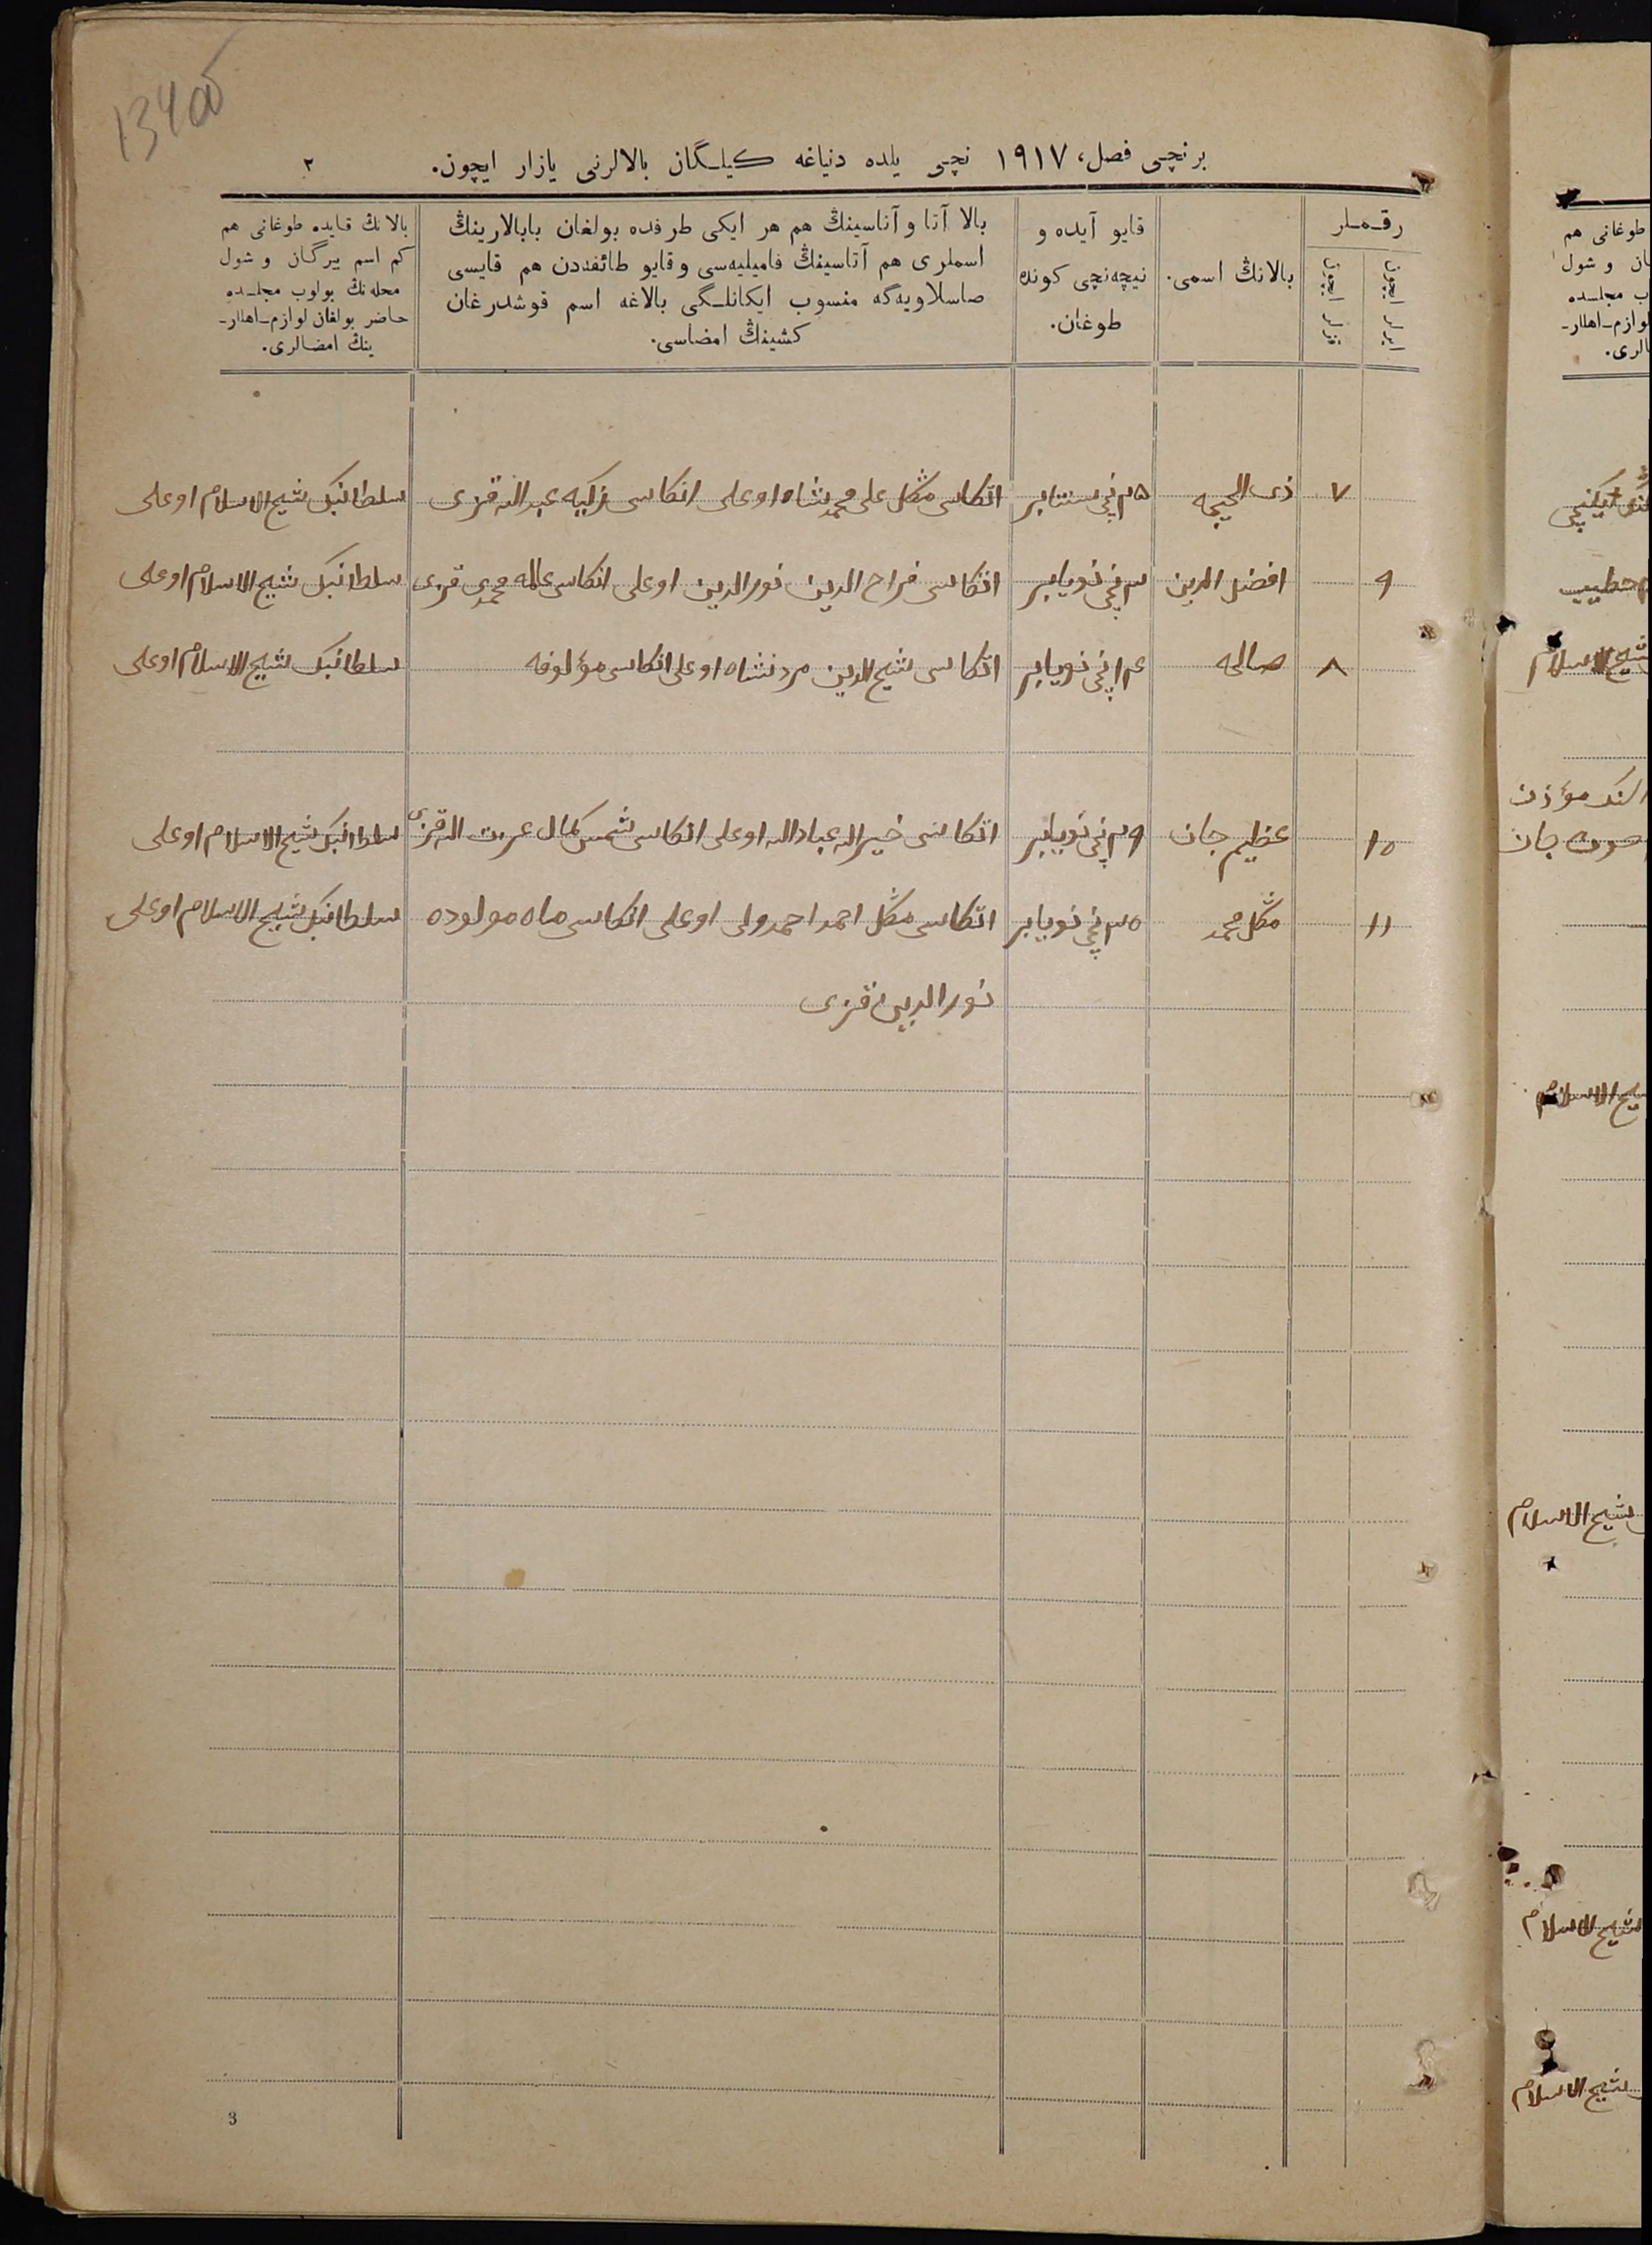 1340об
برنچی فصل، ١٩١٧ نچی یلده دنیاغه کیلگان بالالرنی یازار ایچون.
٢
رقملر
ایرلر ایچون
قزلر ایچون
بالانڭ اسمی.
قایو آیده و
نیچه‌نچی کونده
طوغان.
بالا آتا و آناسینڭ هم هر ایکی طرفده بولغان بابالارینڭ
اسملری هم آتاسینڭ فامیلیه‌سی و قایو طائفه‌دن هم قایسی
صاسلاویه‌گه منسوب ایکانلگی بالاغه اسم قوشدرغان
کشینڭ امضاسی.
بالانڭ قایده طوغانی هم
کم اسم بیرگان و شول
محله‌نڭ بولوب مجلسده
حاضر بولغان لوازم اهللر-
ینڭ امضالری.
٧ ذی الحیجه ٢٥ نچی سنتابر اتکاسی مڭکل علی محمدشاه اوغلی انکاسی زکیه عبدالله قزی سلطانبک شیخ الاسلام اوغلی
٩ افضل الدین ٣ نچی نویابر اتکاسی فراح الدین نورالدین اوغلی انکاسی عالمه محمدی قزی سلطانبک شیخ الاسلام اوغلی
٨ صالحه ١٤ نچی نویابر اتکاسی شیخ الدین مردنشاه اوغلی انکاسی مؤلوفه سلطانبک شیخ الاسلام اوغلی
١٠ عظیم جان ٢٩ نچی نویابر اتکاسی خیرالله عبادالله اوغلی انکاسی شمس کمال عزت الله قزی سلطانبک شیخ الاسلام اوغلی
١١ مڭکل محمد ٣٠ نچی نویابر اتکاسی مڭکل احمد احمدولی اوغلی انکاسی ماه مولوده سلطانبک شیخ الاسلام اوغلی
نورالدین قزی
3
طوغانی هم
ان و شول
ب مجلسده
لوازم اهللر-
الری.
خطیب
شیخ الاسلام
مؤذن
جان
شیخ الاسلام
شیخ الاسلام
شیخ الاسلام
شیخ الاسلام